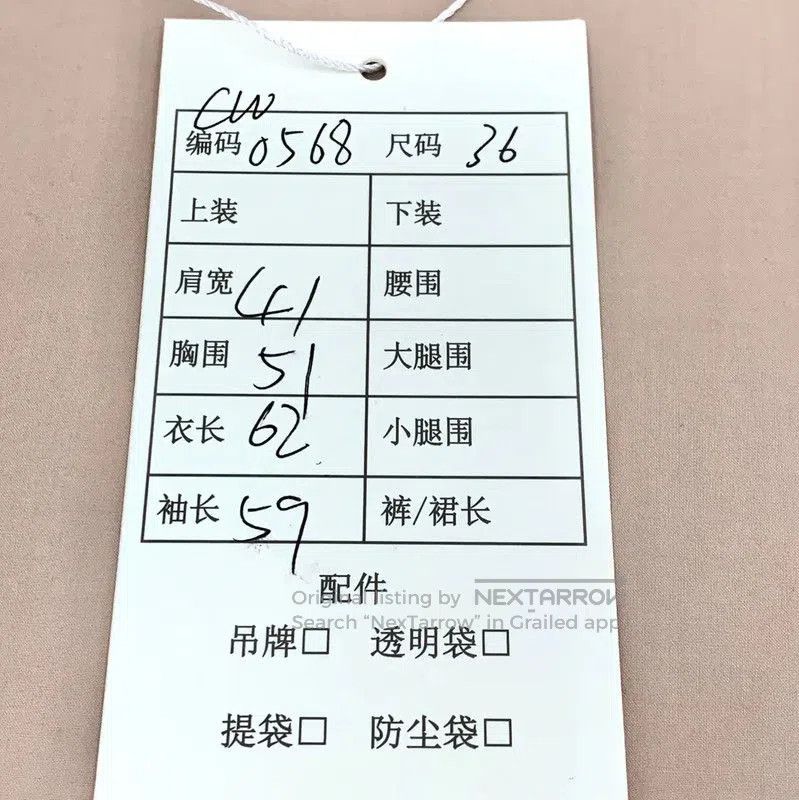 CW
编码 0568 尺码 36
上装 下装
肩宽 41 腰围
胸围 51 大腿围
衣长 62 小腿围
袖长 59 裤/裙长
配件
Original listing by NEXTARROW
Search “NexTarrow” in Grailed app
吊牌□ 透明袋□
提袋□ 防尘袋□